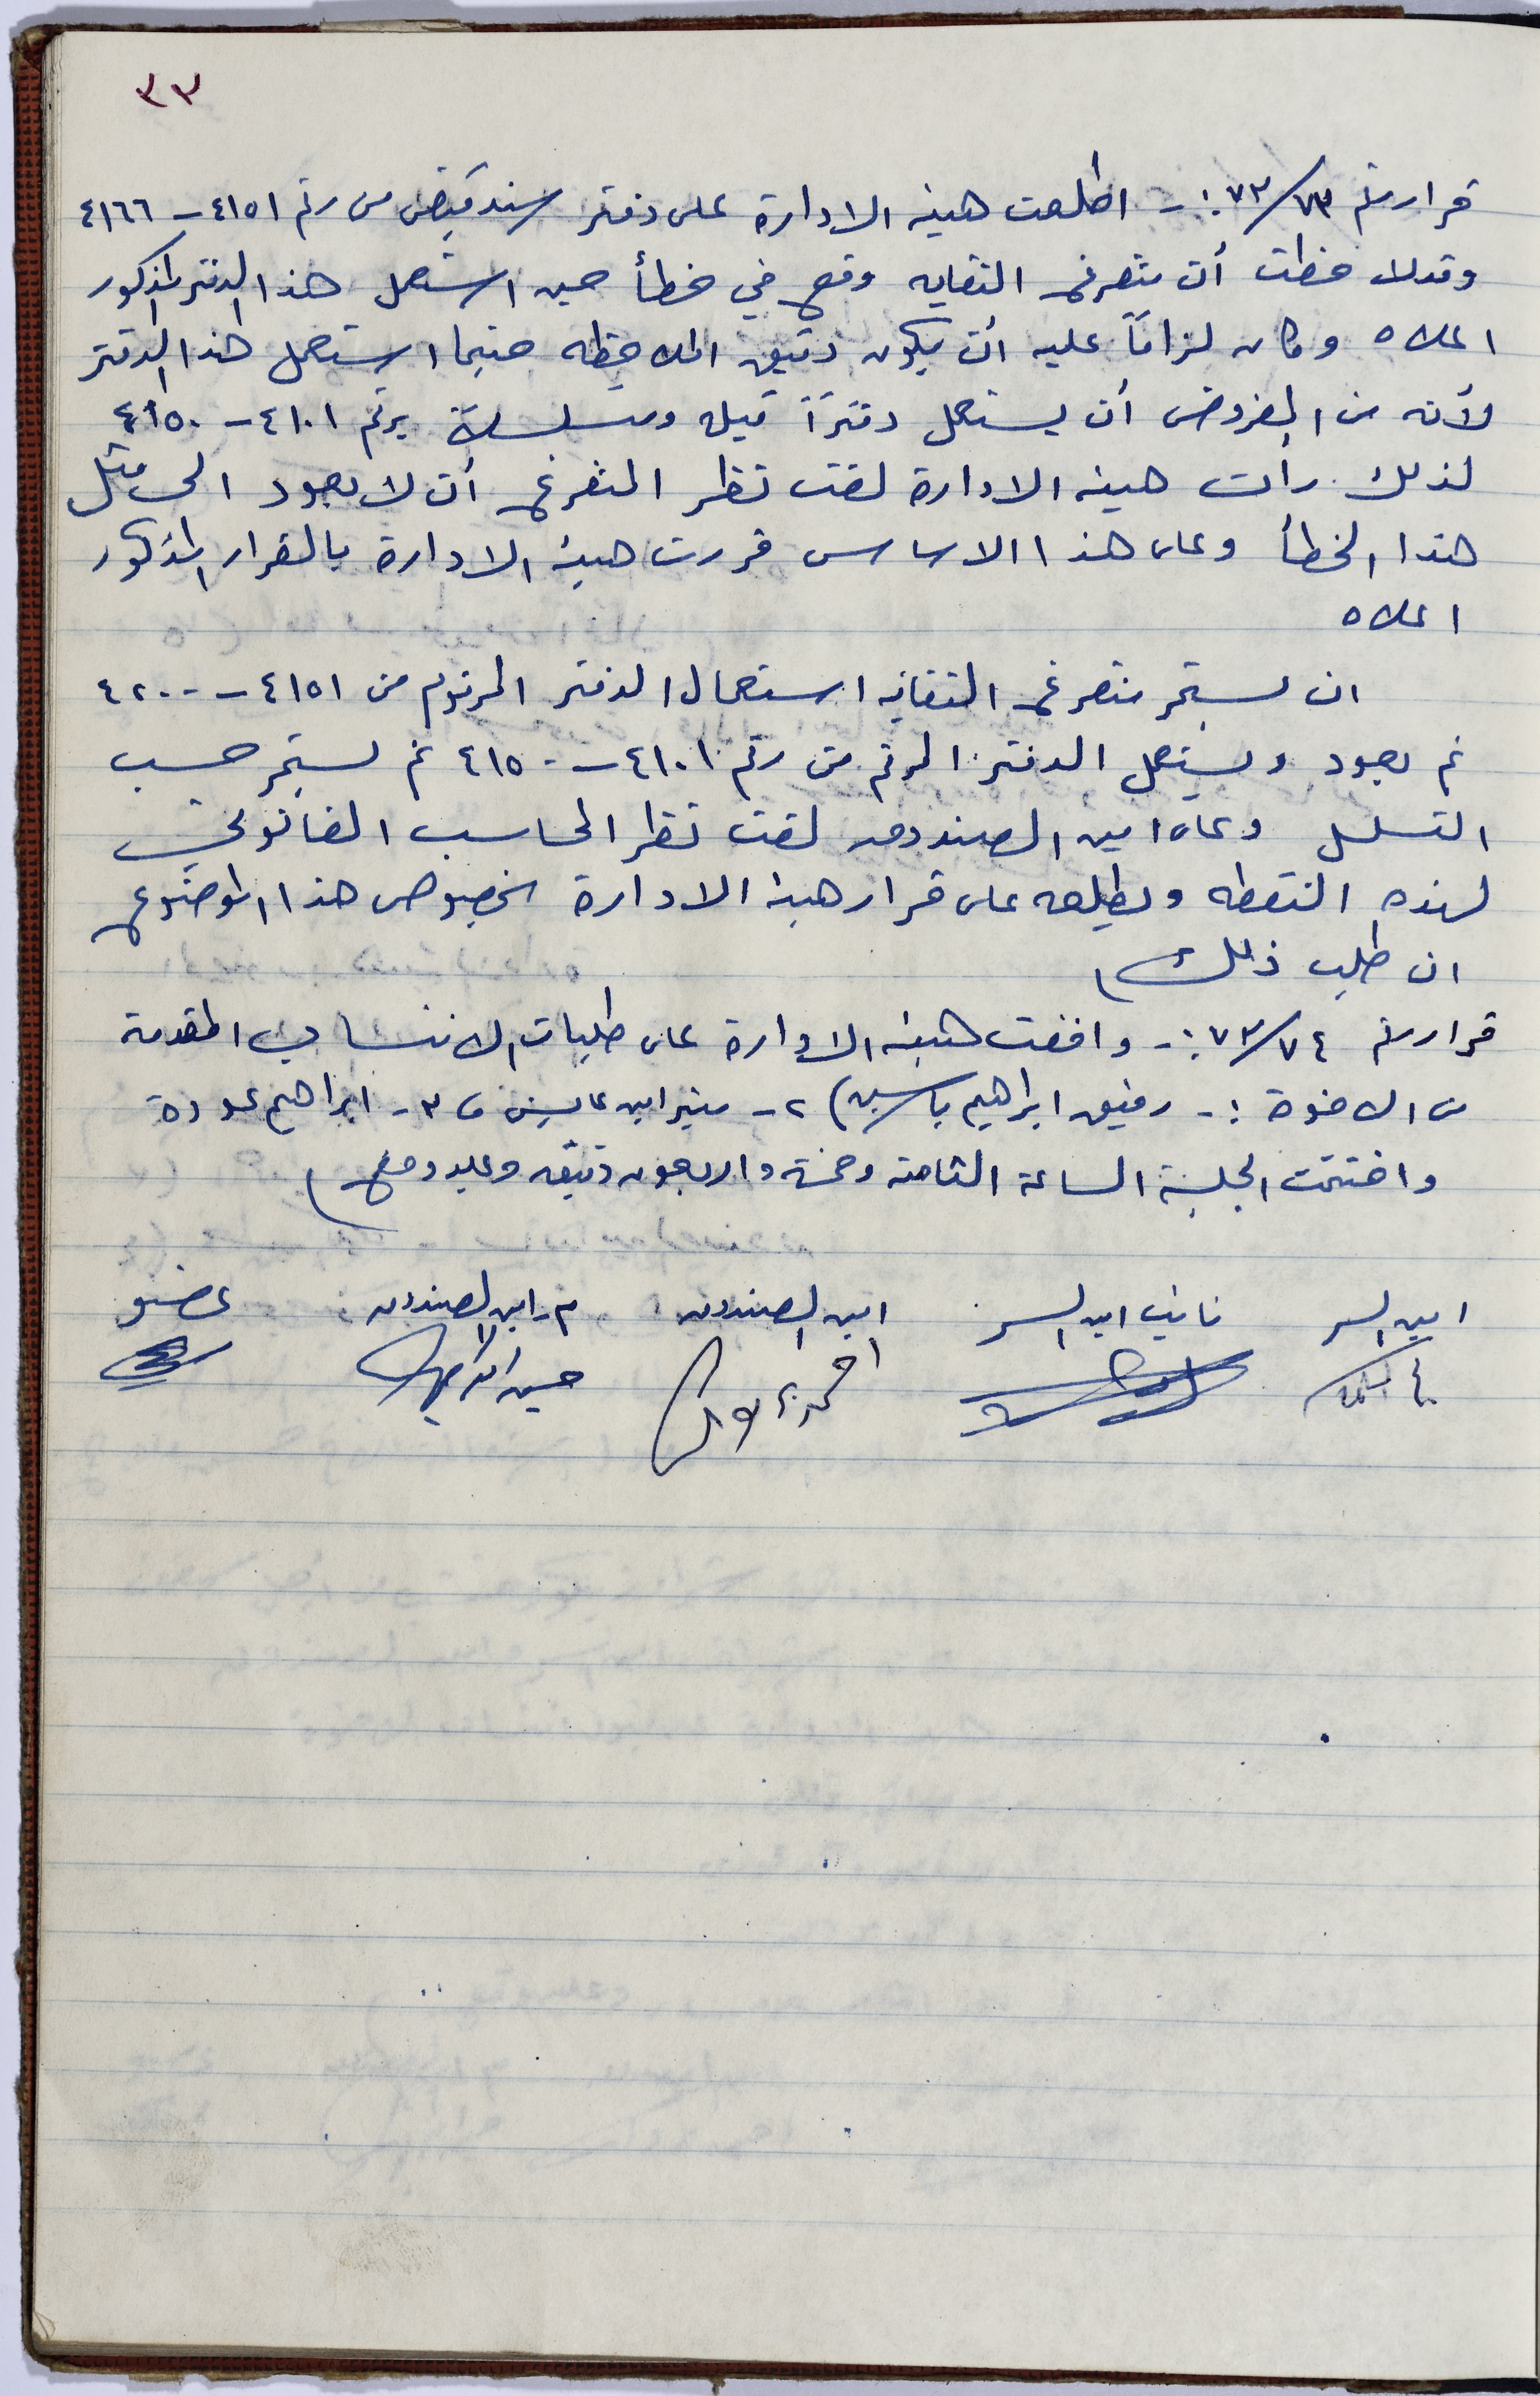 ٣٣
قرار رقم ٧٣/٧٣ :- اطلعت هيئة الادارة على دفتر سند قبض من رقم ٤١٥١ - ٤١٦٦
وقد لاحظت أن متفرغ النقابه وقع في خطأ حين استعمل هذا الدفتر المذكور
اعلاه وكان لزاماً عليه أن يكون دقيق الملاحظه حينما استعمل هذا الدفتر
لأنه من المفروض أن يستعمل دفتراً قبله ومسلسلة برقم ٤١٠١ - ٤١٥٠
لذلك رأت هيئة الادارة لفت نظر المتفرغ أن لا يعود الى مثل
هذا الخطأ وعلى هذا الاساس قررت هيئة الادارة بالقرار المذكور
اعلاه
ان يستمر متفرغ النقابه استعمال الدفتر المرقوم من ٤١٥١ - ٤٢٠٠
ثم يعود ويستعمل الدفتر المرقم من رقم ٤١٠١ - ٤١٥٠ ثم يستمر حسب
التسلسل وعلى امين الصندوق لفت نظر المحاسب القانوني
لهذه النقطه ويطلعه على قرار هيئة الادارة بخصوص هذا الموضوع
ان طلب ذلك
قرار رقم ٧٣/٧٤ :- وافقت هيئة الادارة على طلبات الانتساب المقدمة
من الاخوة :- رفيق ابراهيم ياسين) ٢- منير ابن عايش و ٣- ابراهيم عودة
واختتمت الجلسة الساعة الثامنة وخمسة واربعون دقيقه وعليه وقع
امين السر نائب امين السر امين الصندوق م. امين الصندوق عضو
حسين